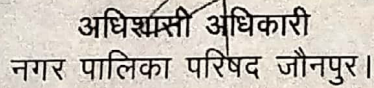 अधिशासी अधिकारी
नगर पालिका परिषद जौनपुर।